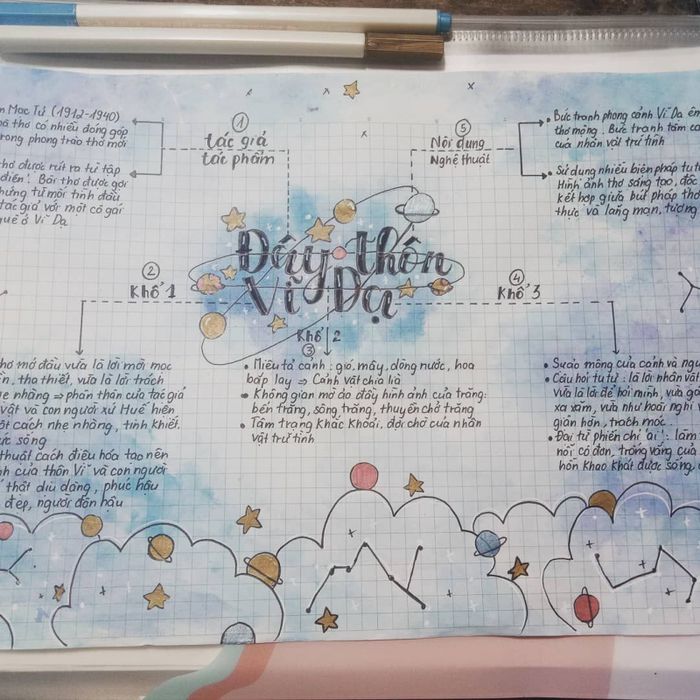 n Mạc Tử (1912-1940)
hà thơ có nhiều đóng góp
rong phong trào thơ mới
hơ được rút ra từ tập
điên! Bài thơ được gợi
hứng từ mối tình đầu
tác giả với một cô gái
quê ở Vĩ Dạ
①
tác giả
tác phẩm
⑤
Nội dung
Nghệ thuật
• Bức tranh phong cảnh Vĩ Dạ ên
thơ mộng. Bức tranh tâm
của nhân vật trữ tình
• Sử dụng nhiều biện pháp tu từ
Hình ảnh thơ sáng tạo, độc
kết hợp giữa bút pháp thơ
thực và lãng mạn, tượng
Đây thôn
Vĩ Dạ
②
Khổ 1
④
Khổ 3
Khổ 2
③
hơ mở đầu vừa là lời mời mọc
ần, tha thiết, vừa là lời trách
nhẹ nhàng => phân thân của tác giả
vật và con người xứ Huế hiện
một cách nhẹ nhàng, tinh khiết,
sức sống
thuật cách điệu hóa tạo nên
của thôn Vĩ và con người
thật dịu dàng, phúc hậu
đẹp, người đôn hậu
• Miêu tả cảnh: gió, mây, dòng nước, hoa
bắp lay => Cảnh vật chia lìa
• Không gian mờ ảo đầy hình ảnh của trăng:
bến trăng, sông trăng, thuyền chở trăng
• Tâm trạng khắc khoải, đợi chờ của nhân
vật trữ tình
• Sự ảo mộng của cảnh và ngư
• Câu hỏi tu từ: là lời nhân vật
vừa là lời để hỏi mình, vừa gở
xa xăm, vừa như hoài nghi
giận hờn, trách móc.
• Đại từ phiến chỉ 'ai': làm
nổi cô đơn, trống vắng của
hồn khao khát được sống,